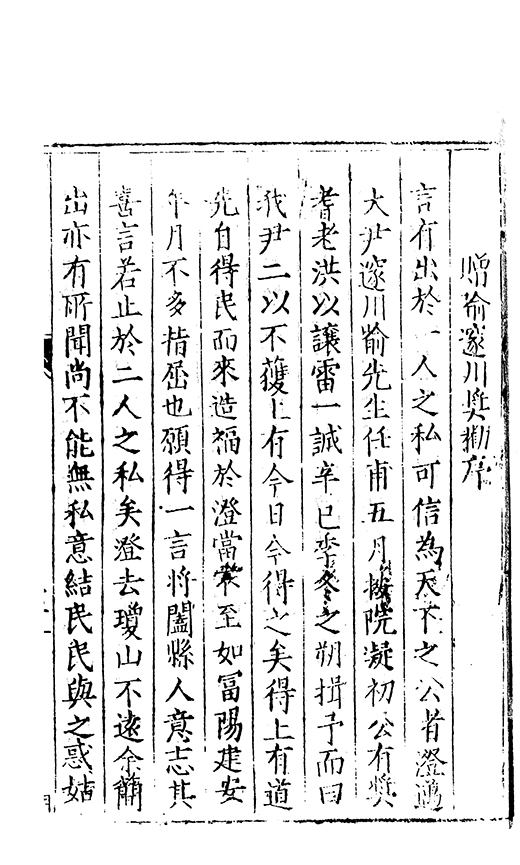 贈喻邃川奬勸序
言有出於一人之私可信為天下之公者澄邁
大尹邃川喻先生任甫五月按院凝初公有奬
耆老洪以讓雷一誠辛巳季冬之朔揖予而曰
我尹二以不獲上有今日今得之矣得上有道
先自得民而來造福於澄當衆至如冨陽建安
年月不多指屈也願得一言将闔縣人意志其
喜言若止於二人之私矣澄去瓊山不遠余簡
出亦有所聞尚不能無私意結民民與之惑姑